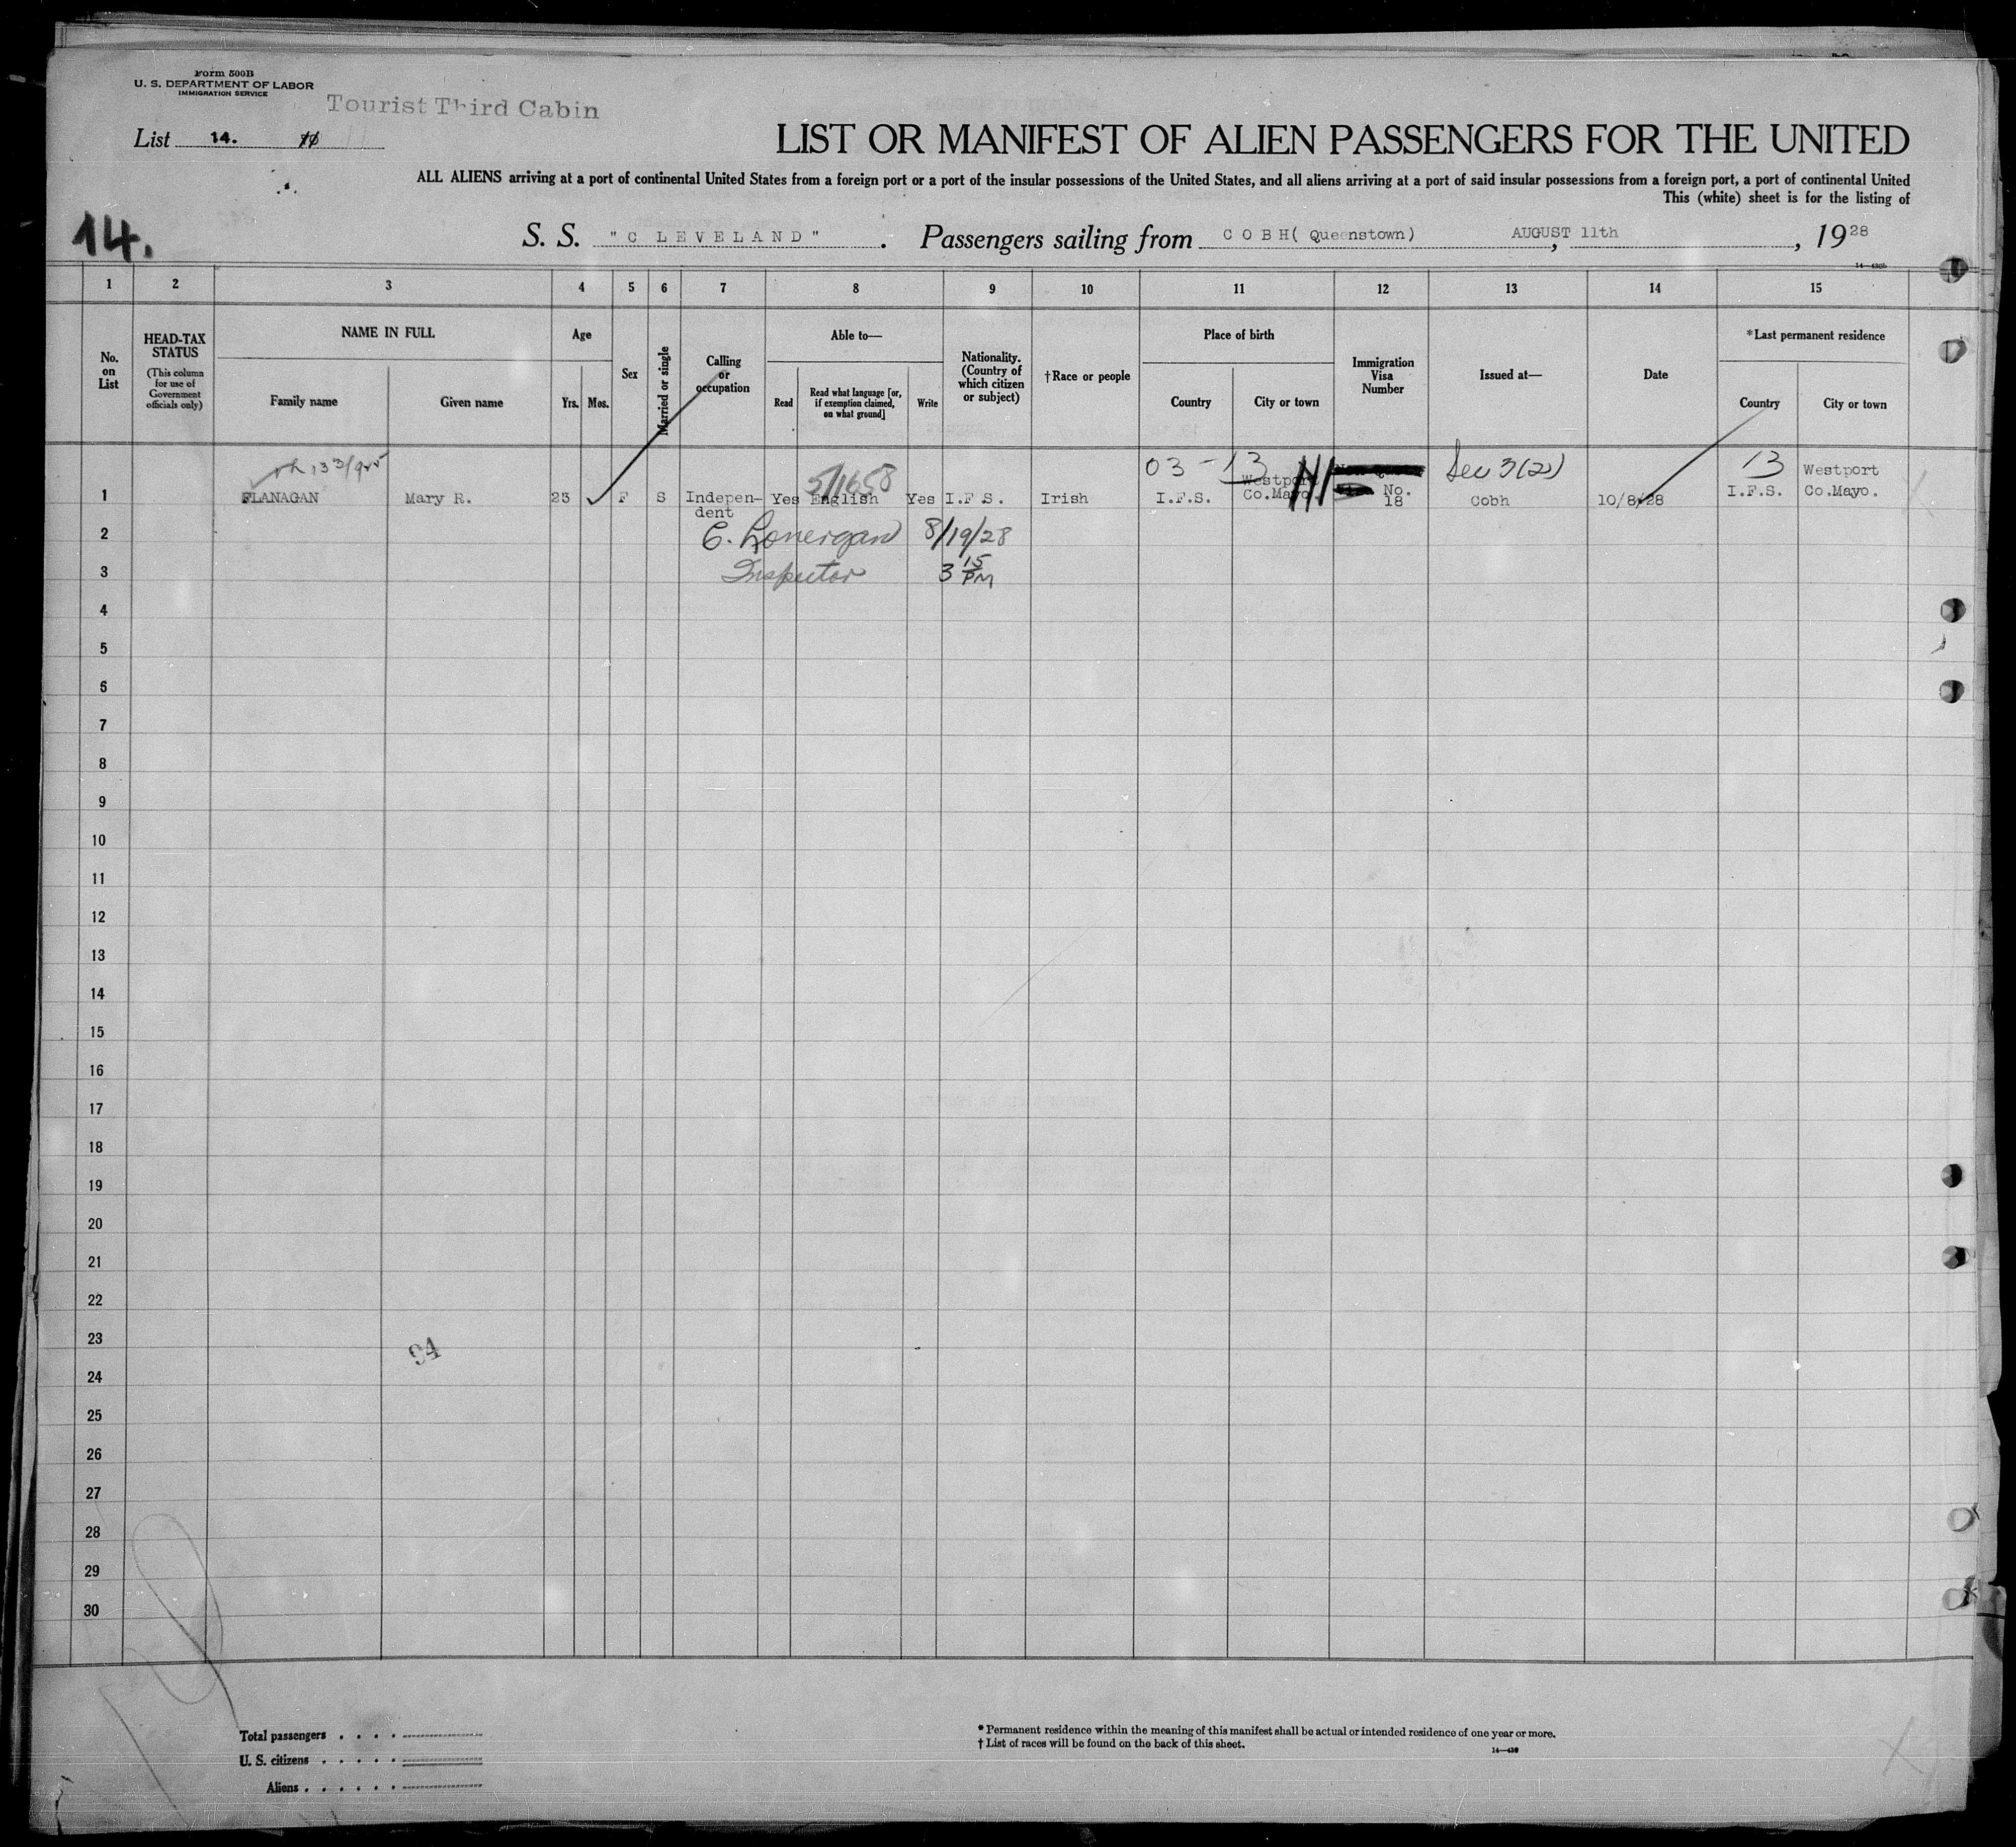 Form 500B
U. S. DEPARTMENT OF LABOR
IMMIGRATION SERVICE
Tourist Third Cabin
List 14.
LIST OR MANIFEST OF ALIEN PASSENGERS FOR THE UNITED
ALL ALIENS arriving at a port of continental United States from a foreign port or a port of the insular possessions of the United States, and all aliens arriving at a port of said insular possessions from a foreign port, a port of continental United
This (white) sheet is for the listing of
14.
S. S. "CLEVELAND". Passengers sailing from COBH (Queenstown), AUGUST 11th, 1928
1 2 3 4 5 6 7 8 9 10 11 12 13 14 15
No. on List
HEAD-TAX STATUS
(This column for use of Government officials only)
NAME IN FULL
Family name
Given name
Age
Yrs. Mos.
Sex
Married or single
Calling or occupation
Able to—
Read
Read what language [or, if exemption claimed, on what ground]
Write
Nationality. (Country of which citizen or subject)
†Race or people
Place of birth
Country
City or town
Immigration Visa Number
Issued at—
Date
*Last permanent residence
Country
City or town
5/1658 03-13 13
1 FLANAGAN Mary R. 23 F S Indepen-dent Yes English Yes I.F.S. Irish I.F.S. Westport Co.Mayo. No. 18 Cobh 10/8/28 I.F.S. Westport Co.Mayo.
2 C. Lonergan 8/19/28
3 Inspector 3 15 PM
4
5
6
7
8
9
10
11
12
13
14
15
16
17
18
19
20
21
22
23
94
24
25
26
27
28
29
30
Total passengers
U. S. citizens
Aliens
* Permanent residence within the meaning of this manifest shall be actual or intended residence of one year or more.
† List of races will be found on the back of this sheet.